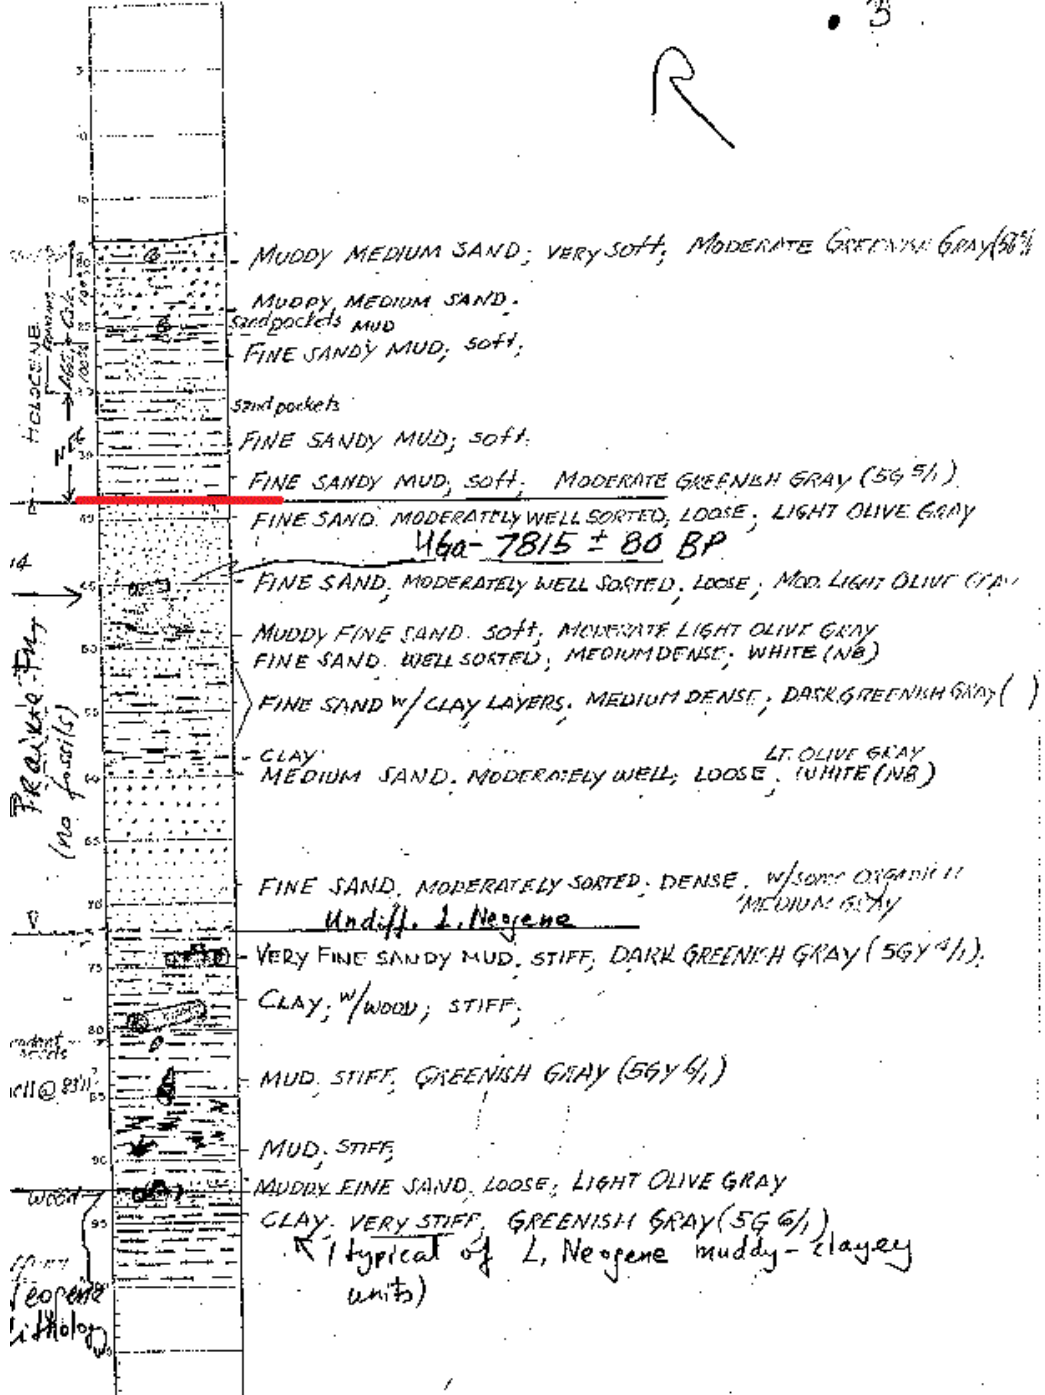 • 3
R
MUDDY MEDIUM SAND; VERY SOFT; MODERATE GREENISH GRAY
MUDDY MEDIUM SAND.
Sandpockets MUD
FINE SANDY MUD; SOFT;
HOLOCENE
Sandpockets
FINE SANDY MUD; SOFT.
FINE SANDY MUD; SOFT; MODERATE GREENISH GRAY (5G 5/1).
40
FINE SAND. MODERATELY WELL SORTED, LOOSE; LIGHT OLIVE GRAY
UGa- 7815 ± 80 BP
14
45
FINE SAND; MODERATELY WELL SORTED; LOOSE; MOD. LIGHT OLIVE
MUDDY FINE SAND. SOFT; MODERATE LIGHT OLIVE GRAY
FINE SAND. WELL SORTED; MEDIUM DENSE; WHITE (N8)
FINE SAND W/CLAY LAYERS; MEDIUM DENSE; DARK GREENISH GRAY ( )
55
Prairie Fm
(no fossils)
CLAY LT. OLIVE GRAY
MEDIUM SAND. MODERATELY WELL; LOOSE. WHITE (N8)
60
65
FINE SAND. MODERATELY SORTED. DENSE. W/SOME
MEDIUM GRAY
70
Undiff. L. Neogene
VERY FINE SANDY MUD. STIFF; DARK GREENISH GRAY (5GY 4/1).
75
CLAY; W/WOOD; STIFF;
80
MUD. STIFF; GREENISH GRAY (5GY 6/1)
85
MUD; STIFF;
90
MUDDY FINE SAND. LOOSE; LIGHT OLIVE GRAY
wood
CLAY. VERY STIFF; GREENISH GRAY (5G 6/1)
95
(typical of L. Neogene muddy-clayey
units)
Neogene
Lithology